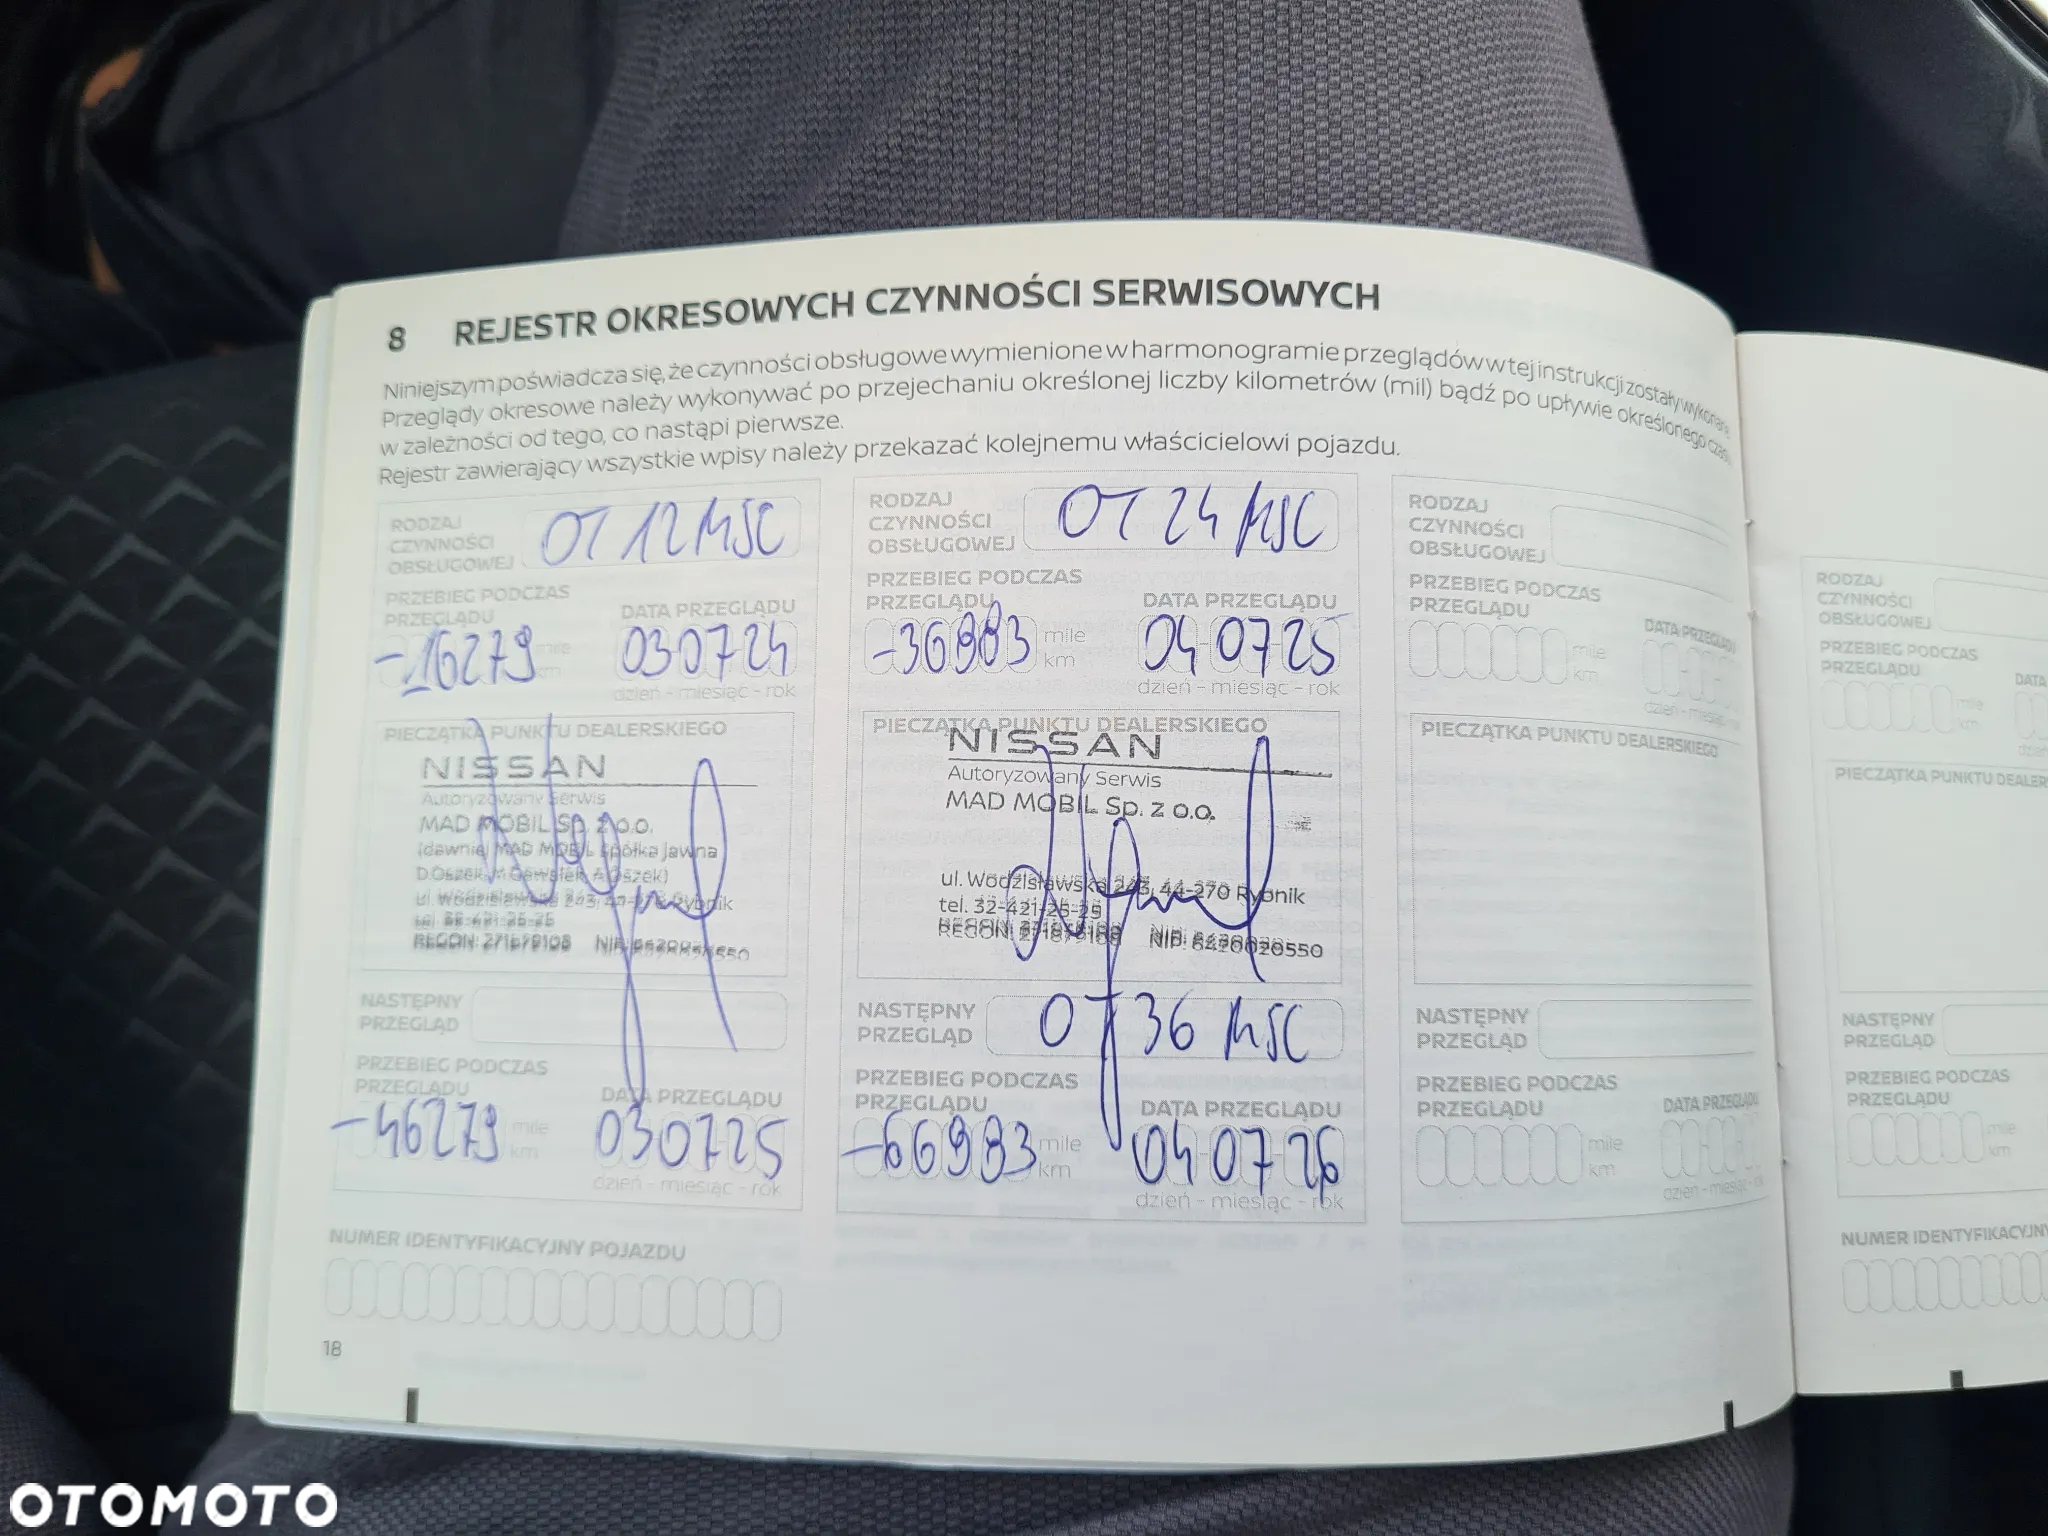 8 REJESTR OKRESOWYCH CZYNNOŚCI SERWISOWYCH
Niniejszym poświadcza się, że czynności obsługowe wymienione w harmonogramie przeglądów w tej instrukcji zostały wykonane.
Przeglądy okresowe należy wykonywać po przejechaniu określonej liczby kilometrów (mil) bądź po upływie określonego czasu,
w zależności od tego, co nastąpi pierwsze.
Rejestr zawierający wszystkie wpisy należy przekazać kolejnemu właścicielowi pojazdu.
RODZAJ
CZYNNOŚCI
OBSŁUGOWEJ
OT 12 MSC
PRZEBIEG PODCZAS
PRZEGLĄDU
DATA PRZEGLĄDU
-16279 mile
km
03 07 24
dzień - miesiąc - rok
PIECZĄTKA PUNKTU DEALERSKIEGO
NISSAN
Autoryzowany Serwis
MAD MOBIL Sp. z o.o.
(dawniej MAD MOBIL Spółka Jawna
ul. Wodzisławska 243, 44-270 Rybnik
tel. 32-421-25-25
REGON: 271679108 NIP: 6420020550
NASTĘPNY
PRZEGLĄD
PRZEBIEG PODCZAS
PRZEGLĄDU
DATA PRZEGLĄDU
-46279 mile
km
03 07 25
dzień - miesiąc - rok
NUMER IDENTYFIKACYJNY POJAZDU
18
RODZAJ
CZYNNOŚCI
OBSŁUGOWEJ
OT 24 MSC
PRZEBIEG PODCZAS
PRZEGLĄDU
DATA PRZEGLĄDU
-36983 mile
km
04 07 25
dzień - miesiąc - rok
PIECZĄTKA PUNKTU DEALERSKIEGO
NISSAN
Autoryzowany Serwis
MAD MOBIL Sp. z o.o.
ul. Wodzisławska 243, 44-270 Rybnik
tel. 32-421-25-25
REGON: 271679108 NIP: 6420020550
NASTĘPNY
PRZEGLĄD
OT 36 MSC
PRZEBIEG PODCZAS
PRZEGLĄDU
DATA PRZEGLĄDU
-66983 mile
km
04 07 26
dzień - miesiąc - rok
RODZAJ
CZYNNOŚCI
OBSŁUGOWEJ
PRZEBIEG PODCZAS
PRZEGLĄDU
DATA PRZEGLĄDU
mile
km
dzień - miesiąc - rok
PIECZĄTKA PUNKTU DEALERSKIEGO
NASTĘPNY
PRZEGLĄD
PRZEBIEG PODCZAS
PRZEGLĄDU
DATA PRZEGLĄDU
mile
km
dzień - miesiąc - rok
RODZAJ
CZYNNOŚCI
OBSŁUGOWEJ
PRZEBIEG PODCZAS
PRZEGLĄDU
DATA
mile
km
PIECZĄTKA PUNKTU
NASTĘPNY
PRZEGLĄD
PRZEBIEG PODCZAS
PRZEGLĄDU
mile
km
NUMER
OTOMOTO